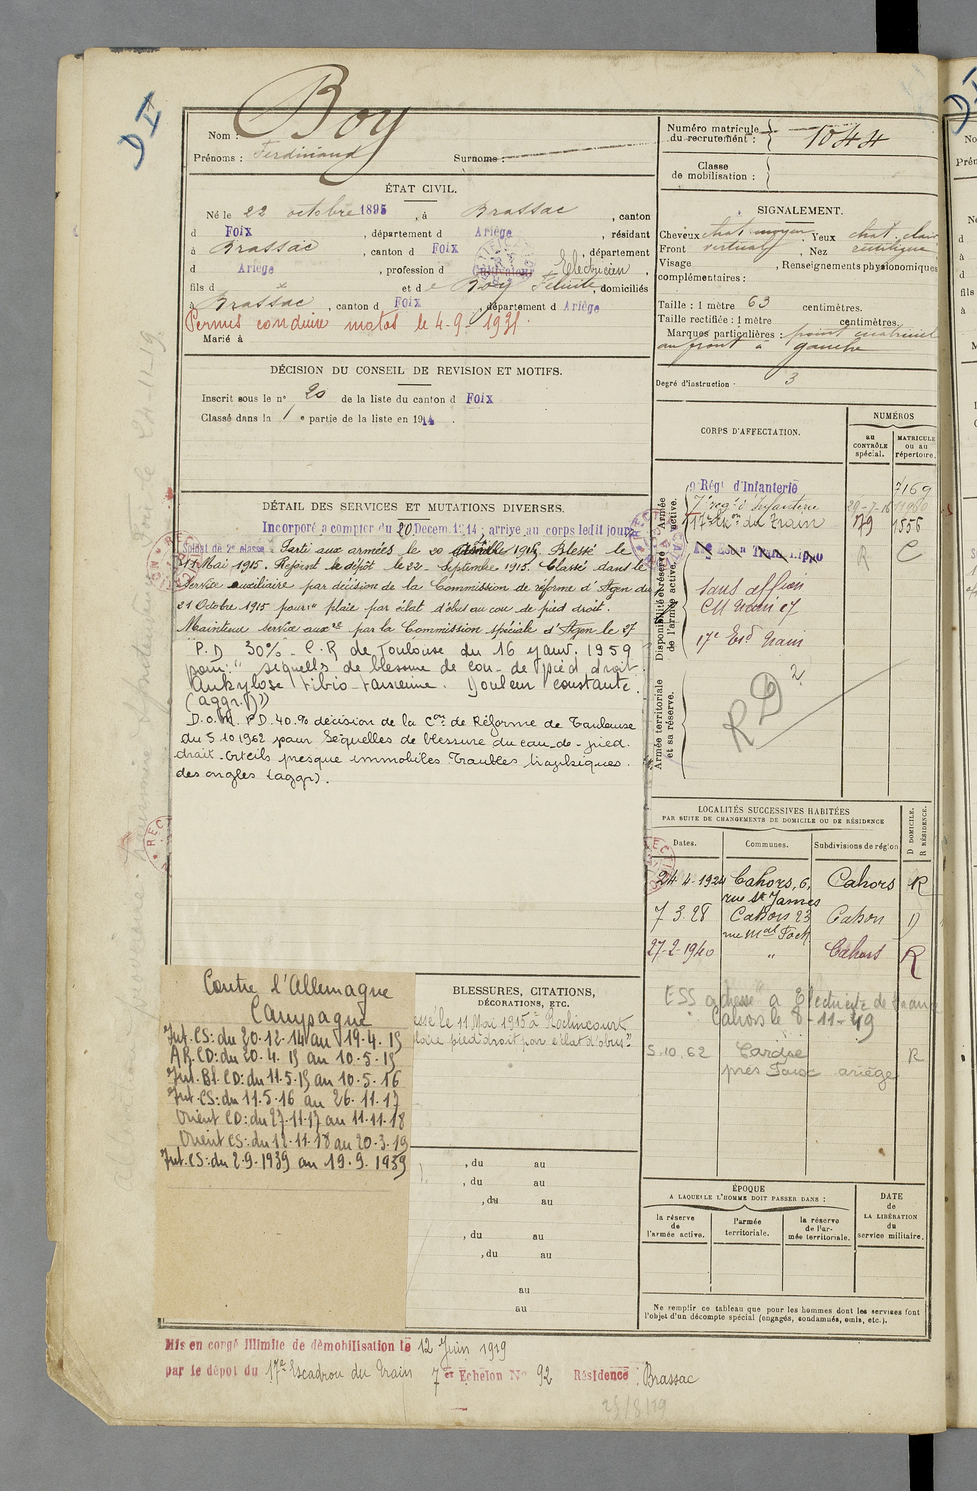 D II
Nom : Boy
Prénoms : Ferdinand Surnoms :
ÉTAT CIVIL.
Né le 22 octobre 1895, à Brassac, canton
d Foix, département d Ariège, résidant
à Brassac, canton d Foix, département
d Ariège, profession d Cultivateur Electricien,
fils d et de Boy Felicité, domiciliés
à Brassac, canton d Foix, département d Ariège
Permis conduire motos le 4-9-1931.
Marié à
DÉCISION DU CONSEIL DE REVISION ET MOTIFS.
Inscrit sous le n° 20 de la liste du canton d Foix
Classé dans la 1e partie de la liste en 1914.
DÉTAIL DES SERVICES ET MUTATIONS DIVERSES.
Incorporé a compter du 20 Decem. 1914; arrivé au corps ledit jour
Soldat de 2e classe. Parti aux armées le 20 Avril 1915. Blessé le
11 Mai 1915. Rejoint le dépôt le 22 Septembre 1915. Classé dans le
Service auxiliaire par décision de la Commission de réforme d'Agen du
21 Octobre 1915 pour: " plaie par éclat d'obus au cou de pied droit.
Maintenu service auxre par la Commission spéciale d'Agen le 27
P.D 30% - C.R de Toulouse du 16 janv. 1959
pour: " séquelles de blessure de cou-de-pied droit.
Ankylose tibio-tarsienne. Douleur constante.
(aggr.)"
P.D. 40.% décision de la Con de Réforme de Toulouse
du 5.10 1962 pour Séquelles de blessure du cou-de-pied
droit. Orteils presque immobiles. Troubles trophiques
des ongles (aggr).
Contre l'Allemagne
Campagne
Int. CS: du 20-12-14 au 19.4.15
AR. CD: du 20.4.15 au 10-5-15
Int. Bl. CD: du 11.5.15 au 10.5.16
Int. CS: du 11.5.16 au 26.11.17
Orient CD: du 27-11-17 au 11-11-18
Orient CS: du 12-11-18 au 20-3-19
Int. CS: du 2-9-1939 au 19.9.1939
BLESSURES, CITATIONS,
DÉCORATIONS, ETC.
le 11 Mai 1915 à Roclincourt
pied droit par éclat d'obus"
, du au
, du au
, du au
, du au
, du au
au
au
Mis en congé illimité de démobilisation le 12 Juin 1919
par le dépôt du 17e Escadron du Train 7er Echelon N° 92 Résidence : Brassac
25/8/19
Numéro matricule
du recrutement : 1044
Classe
de mobilisation :
SIGNALEMENT.
Cheveux chat moyen, Yeux chat. clair
Front vertical, Nez rectiligne
Visage , Renseignements physionomiques
complémentaires :
Taille : 1 mètre 63 centimètres.
Taille rectifiée : 1 mètre centimètres.
Marques particulières :
au front à gauche
Degré d'instruction : 3
CORPS D'AFFECTATION.
NUMÉROS
au
CONTRÔLE
spécial.
MATRICULE
ou au
répertoire.
Armée
active.
9e Régt d'Infanterie 7169
7e regt d'Infanterie
17e Eson du Train 179 1556
Disponibilité et réserve
de l'armée active.
R C
Sans affon
CM train 17
17e Esd Train
Armée territoriale
et sa réserve.
RD 2
LOCALITÉS SUCCESSIVES HABITÉES
PAR SUITE DE CHANGEMENTS DE DOMICILE OU DE RÉSIDENCE
D DOMICILE.
R RÉSIDENCE.
Dates. Communes. Subdivisions de région
24 4-1924 Cahors, 6, Cahors R
rue St James
7 3.28 Cahors 23 Cahors D
rue Mal Foch
27-2-1940 " Cahors R
ESS adresse à Electricité de France
Cahors le 8-11-49
5.10.62 R
près Foix Ariège
ÉPOQUE
A LAQUELLE L'HOMME DOIT PASSER DANS :
la réserve
de
l'armée active.
l'armée
territoriale.
la réserve
de l'ar-
mée territoriale.
DATE
de
LA LIBÉRATION
du
service militaire.
Ne remplir ce tableau que pour les hommes dont les services font
l'objet d'un décompte spécial (engagés, condamnés, omis, etc.).